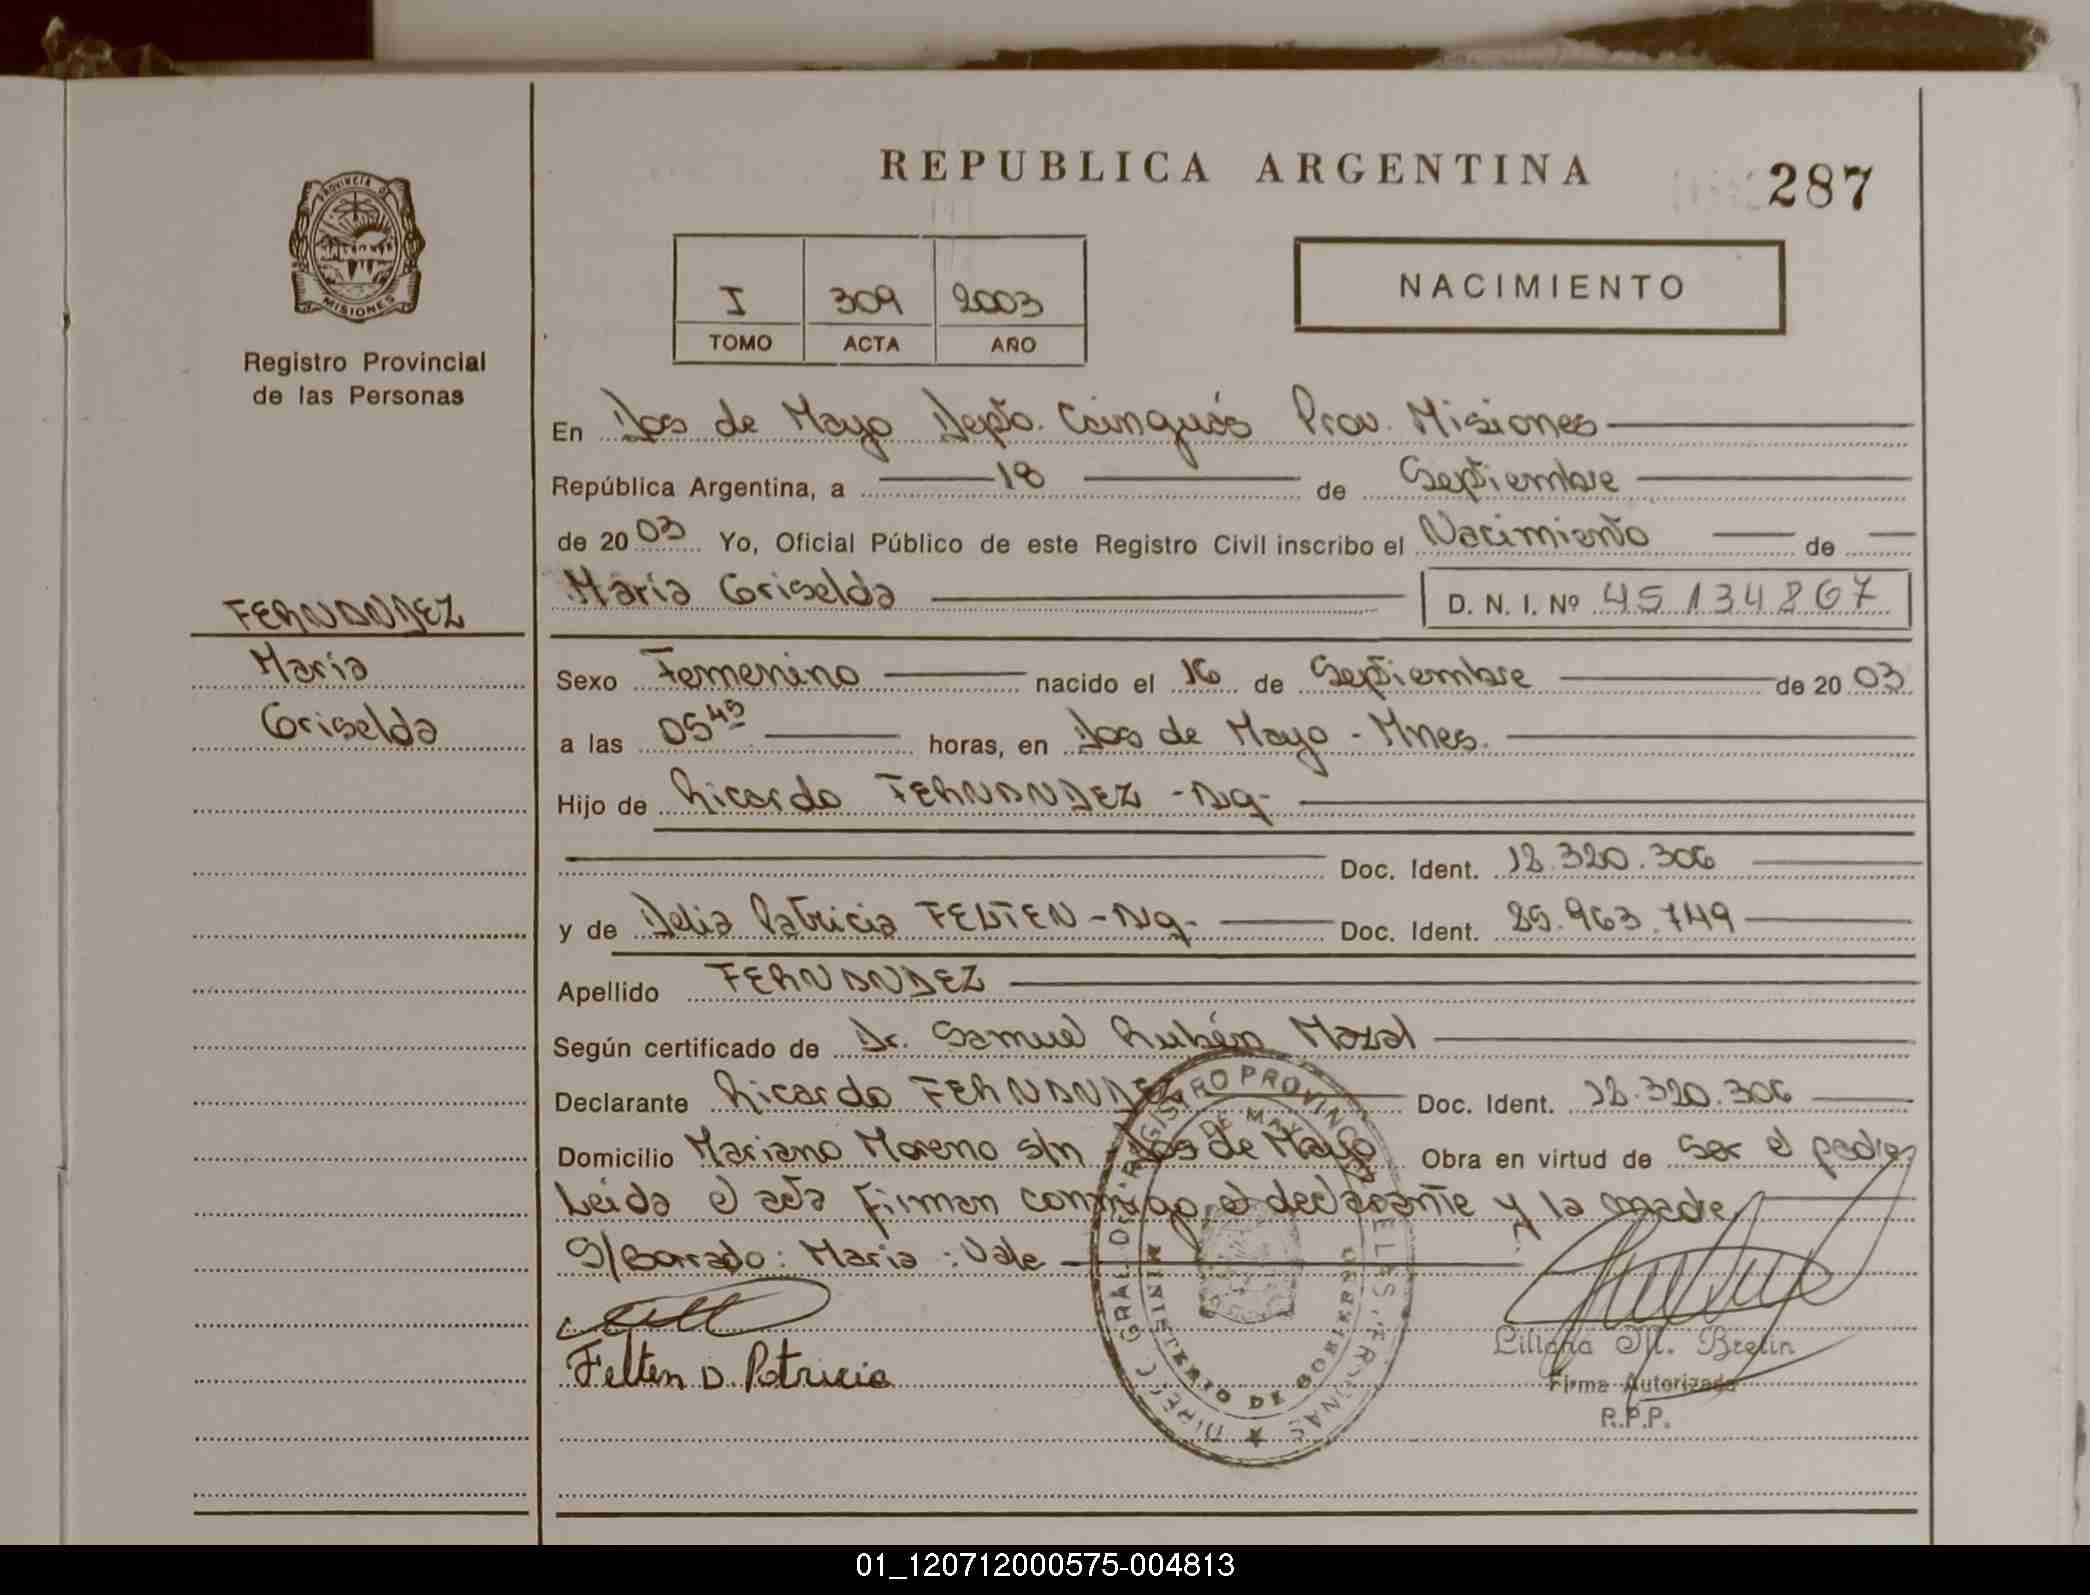 REPUBLICA ARGENTINA
287
PROVINCIA D
MISIONES
Registro Provincial
de las Personas
I 309 2003
TOMO ACTA AÑO
NACIMIENTO
En Dos de Mayo Depto. Cainguás Prov. Misiones
República Argentina, a 18 de Septiembre
de 2003 Yo, Oficial Público de este Registro Civil inscribo el Nacimiento de
Maria Griselda D. N. I. Nº 45134867
FERNANDEZ
Maria
Griselda
Sexo Femenino nacido el 16 de Septiembre de 2003
a las 05 45 horas, en Dos de Mayo - Mnes.
Hijo de Ricardo FERNANDEZ -Arg-
Doc. Ident. 18.320.306
y de Delia Patricia FELTEN -Arg- Doc. Ident. 25.963.749
Apellido FERNANDEZ
Según certificado de Dr. Samuel Rubén
Declarante Ricardo FERNANDEZ Doc. Ident. 18.320.306
Domicilio Mariano Moreno s/n Dos de Mayo Obra en virtud de ser el padre,
Leida el acta firman conmigo, el declarante y la madre
S/Borrado: Maria : Vale
Felten D. Patricia
Liliana M. Brelin
Firma Autorizada
R.P.P.
MINISTERIO DE GOBIERNO
01_120712000575-004813